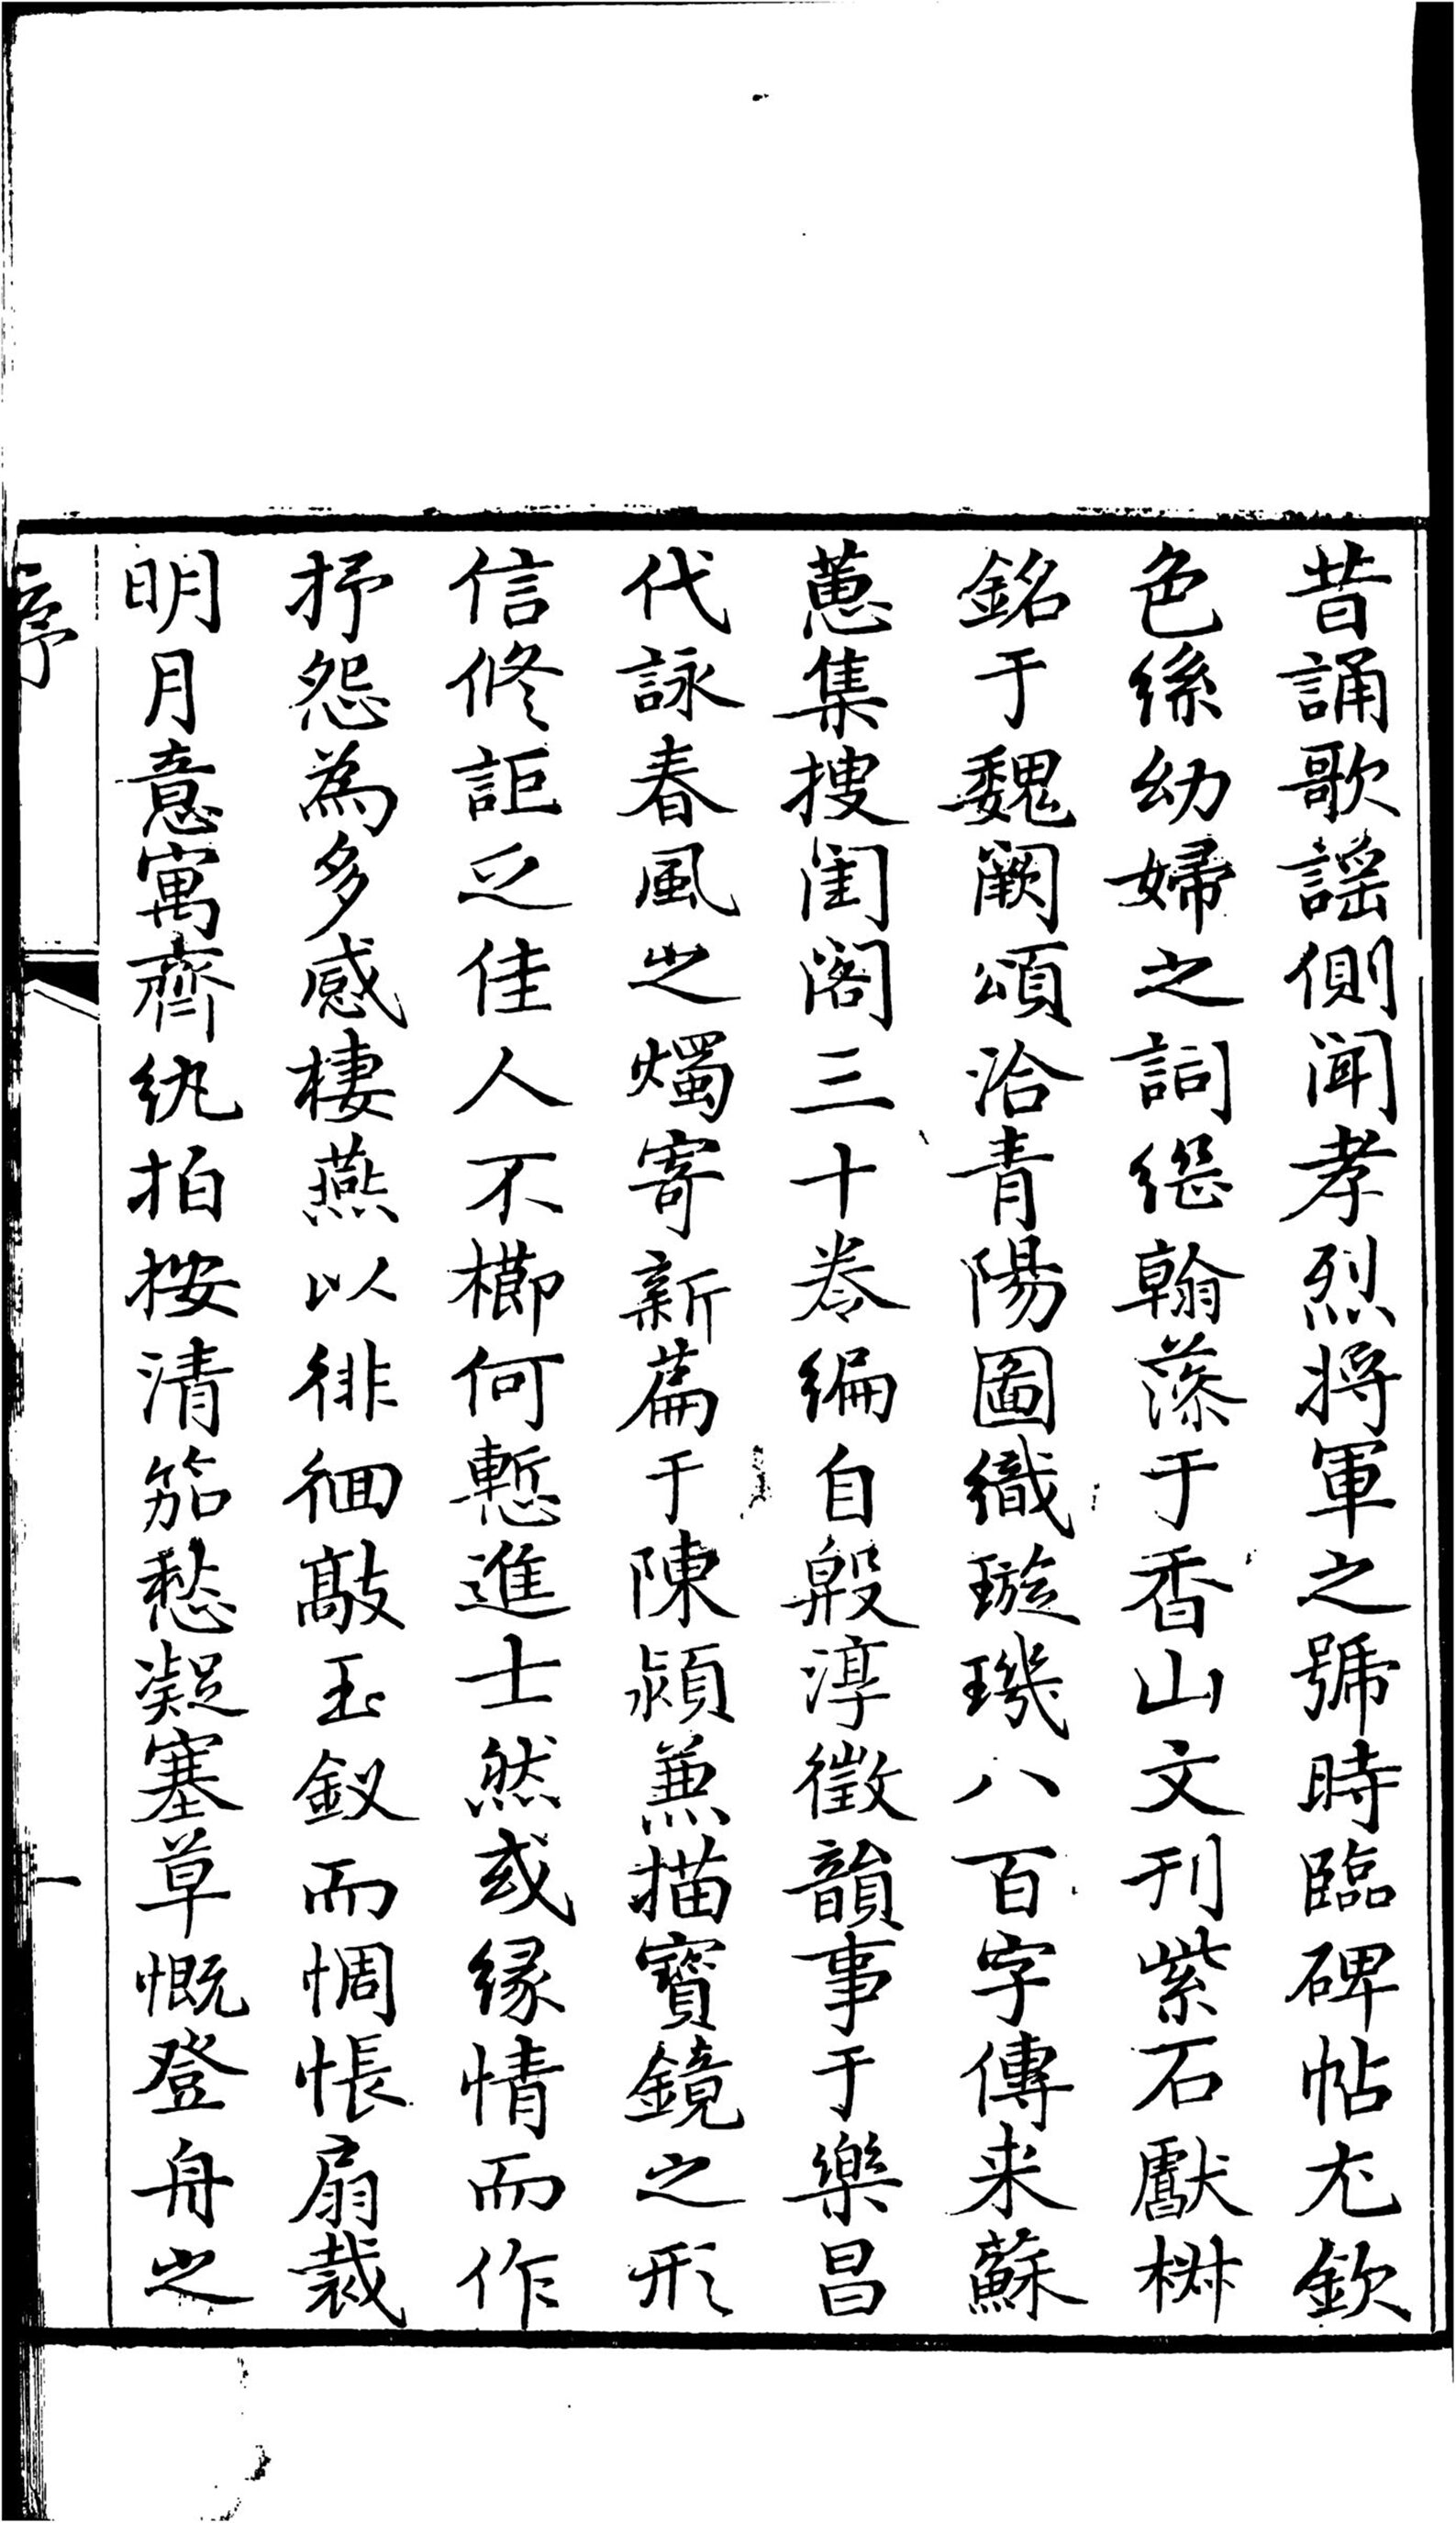 昔誦歌謡側闻孝烈將軍之號時臨碑帖尢欽
色絲幼婦之詞緫翰藻于香山文刊紫石獻椒
銘于魏阙頌洽青陽圖織璇璣八百字傳来蘇
蕙集搜闺阁三十卷编自殷淳徵韻事于樂昌
代詠春風之燭寄新篇于陳潁兼描寳鏡之形
信修詎乏佳人不櫛何慙進士然或緣情而作
抒怨為多感棲燕以徘徊敲玉釵而惆悵扇裁
明月意寓齊紈拍按清笳愁凝塞草慨登舟之
序
一